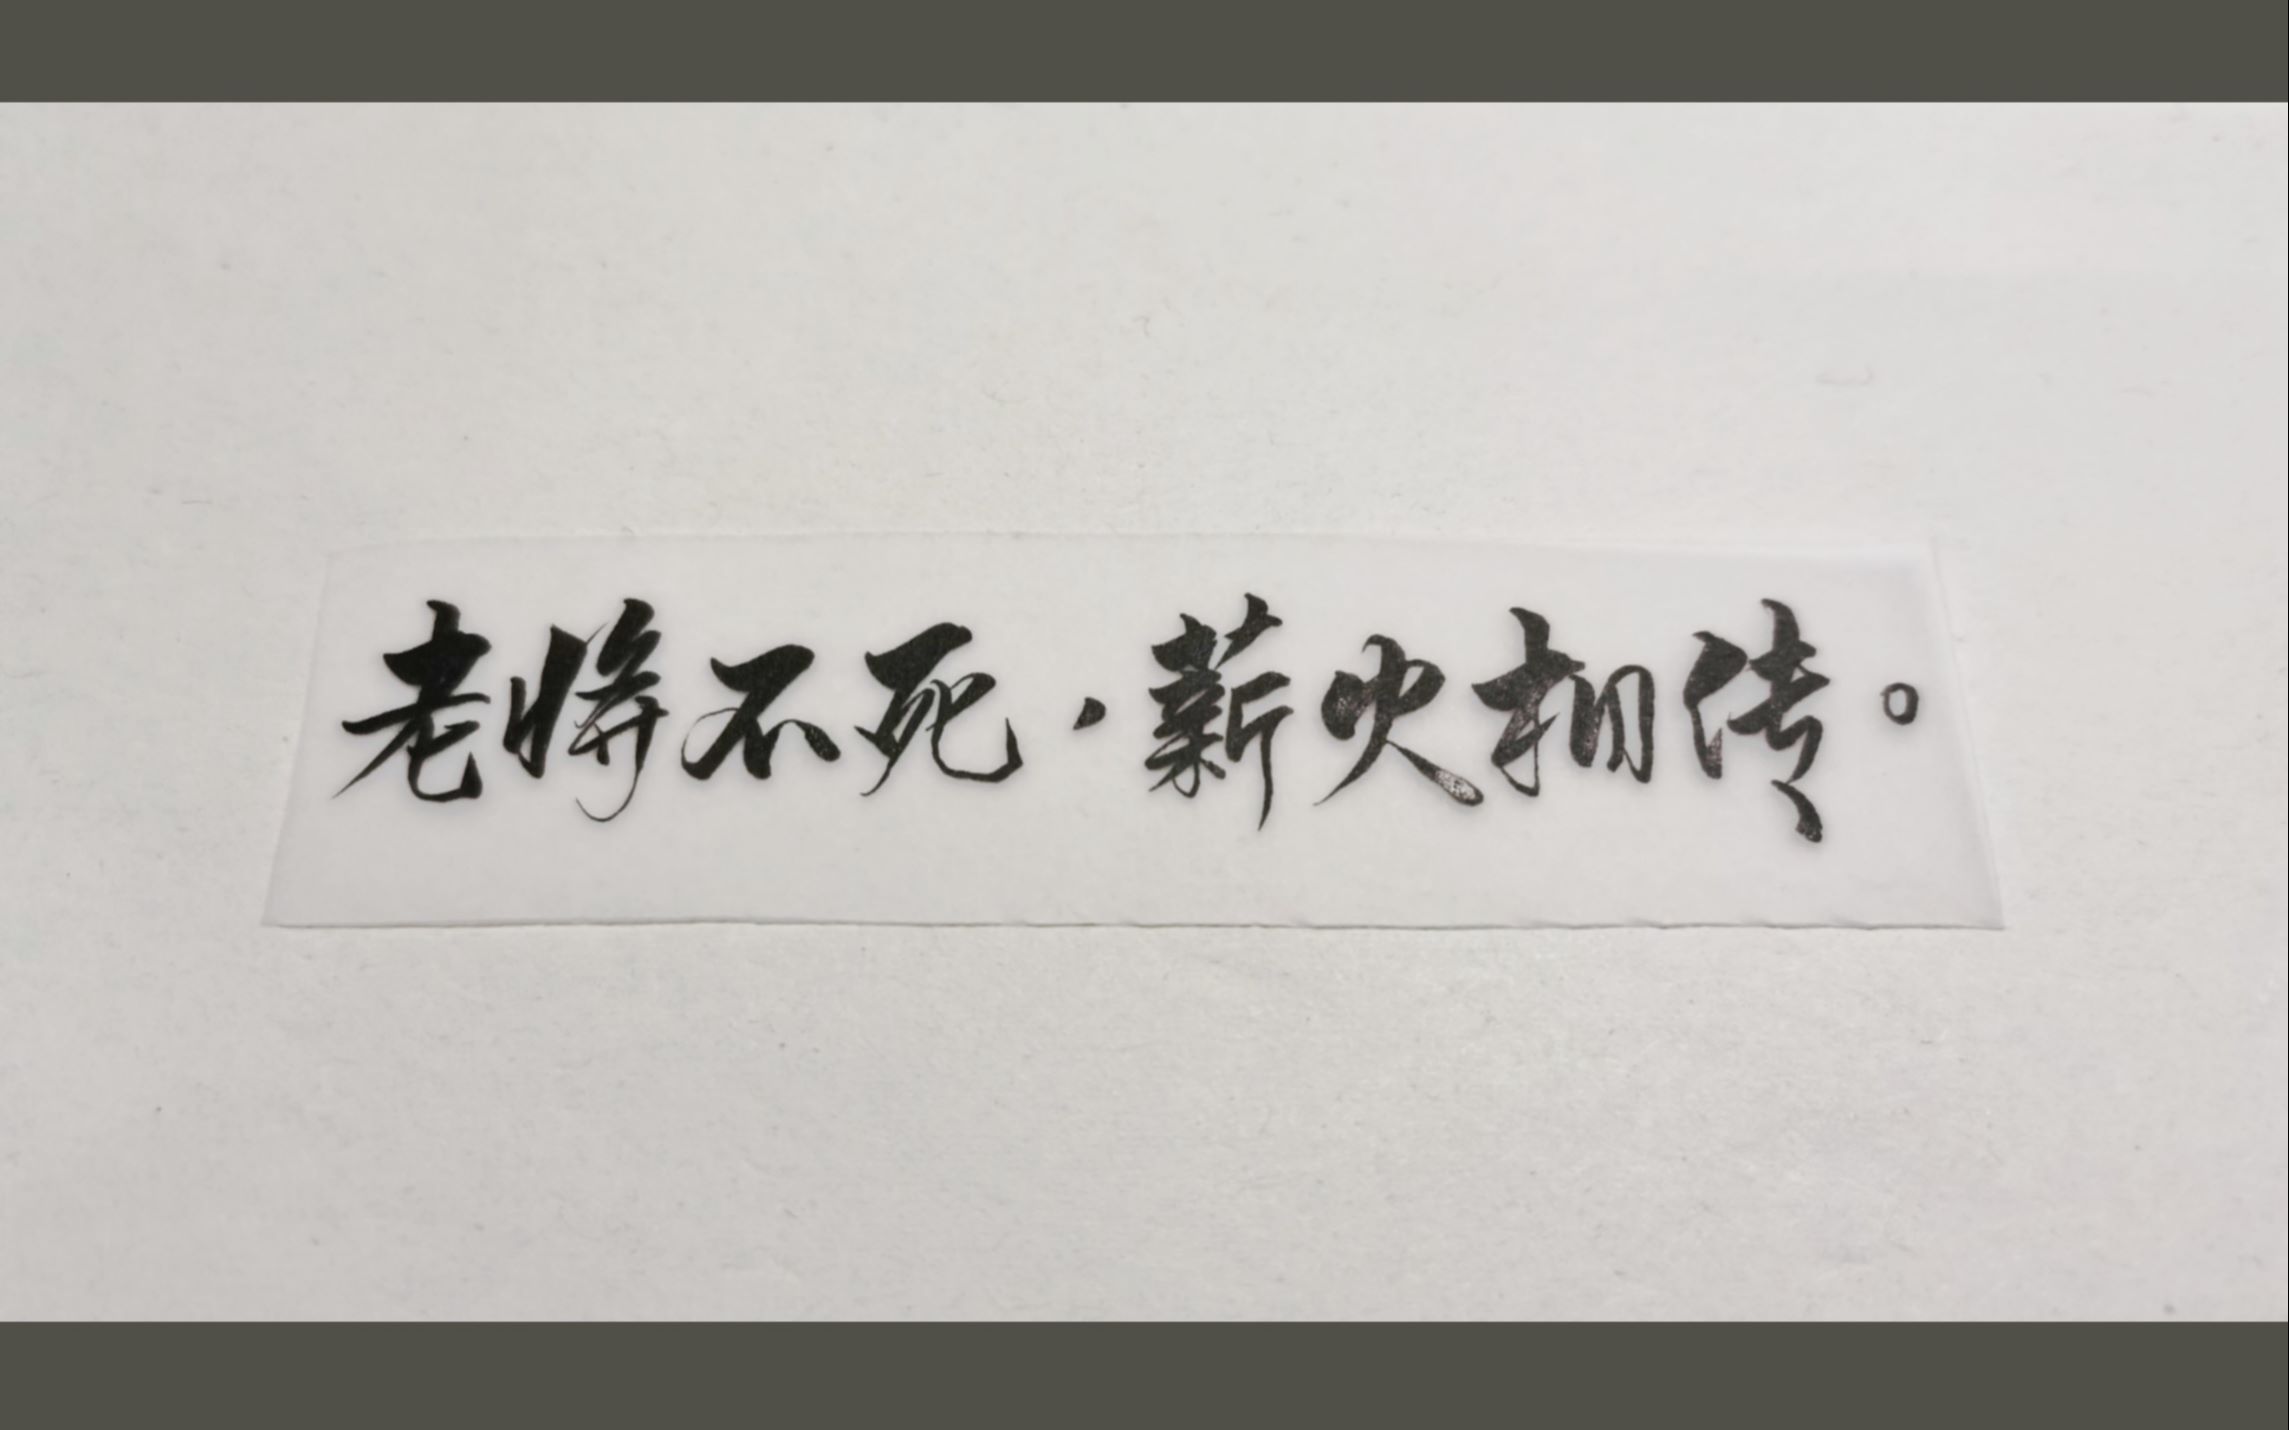 老将不死，薪火相传。